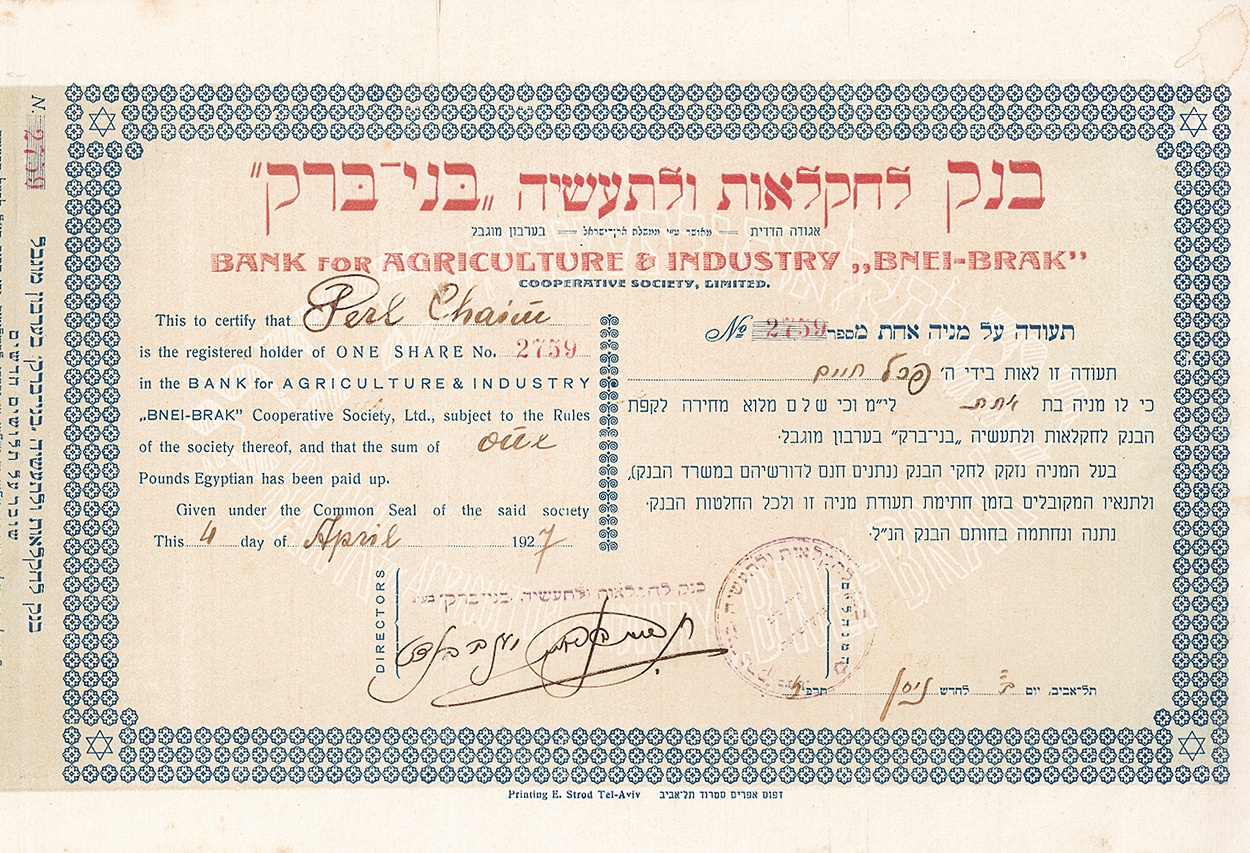 בנק לחקלאות ולתעשיה „בני־ברק"
אגודה הדדית — מאושר ע״י ממשלת ארץ־ישראל — בערבון מוגבל
BANK FOR AGRICULTURE & INDUSTRY „BNEI-BRAK”
COOPERATIVE SOCIETY, LIMITED.
This to certify that Perl Chaim
is the registered holder of ONE SHARE No. 2759
in the BANK for AGRICULTURE & INDUSTRY
„BNEI-BRAK” Cooperative Society, Ltd., subject to the Rules
of the society thereof, and that the sum of one
Pounds Egyptian has been paid up.
Given under the Common Seal of the said society
This 4 day of April 1927
תעודה על מניה אחת מספר 2759 No
תעודה זו לאות בידי ה' פרל חיים
כי לו מניה בת אחת לי״מ וכי שלם מלוא מחירה לקפת
הבנק לחקלאות ולתעשיה „בני־ברק" בערבון מוגבל.
בעל המניה נזקק לחקי הבנק (נתנים חנם לדורשיהם במשרד הבנק),
ולתנאיו המקובלים בזמן חתימת תעודת מניה זו ולכל החלטות הבנק.
נתנה ונחתמה בחותם הבנק הנ״ל.
DIRECTORS
בנק לחקלאות ולתעשיה „בני־ברק" בע״מ
תל־אביב, יום ב' לחדש ניסן תרפ״ז
Printing E. Strod Tel-Aviv דפוס אפרים סטרוד תל־אביב
No 2759
בנק לחקלאות ולתעשיה „בני־ברק" בערבון מוגבל